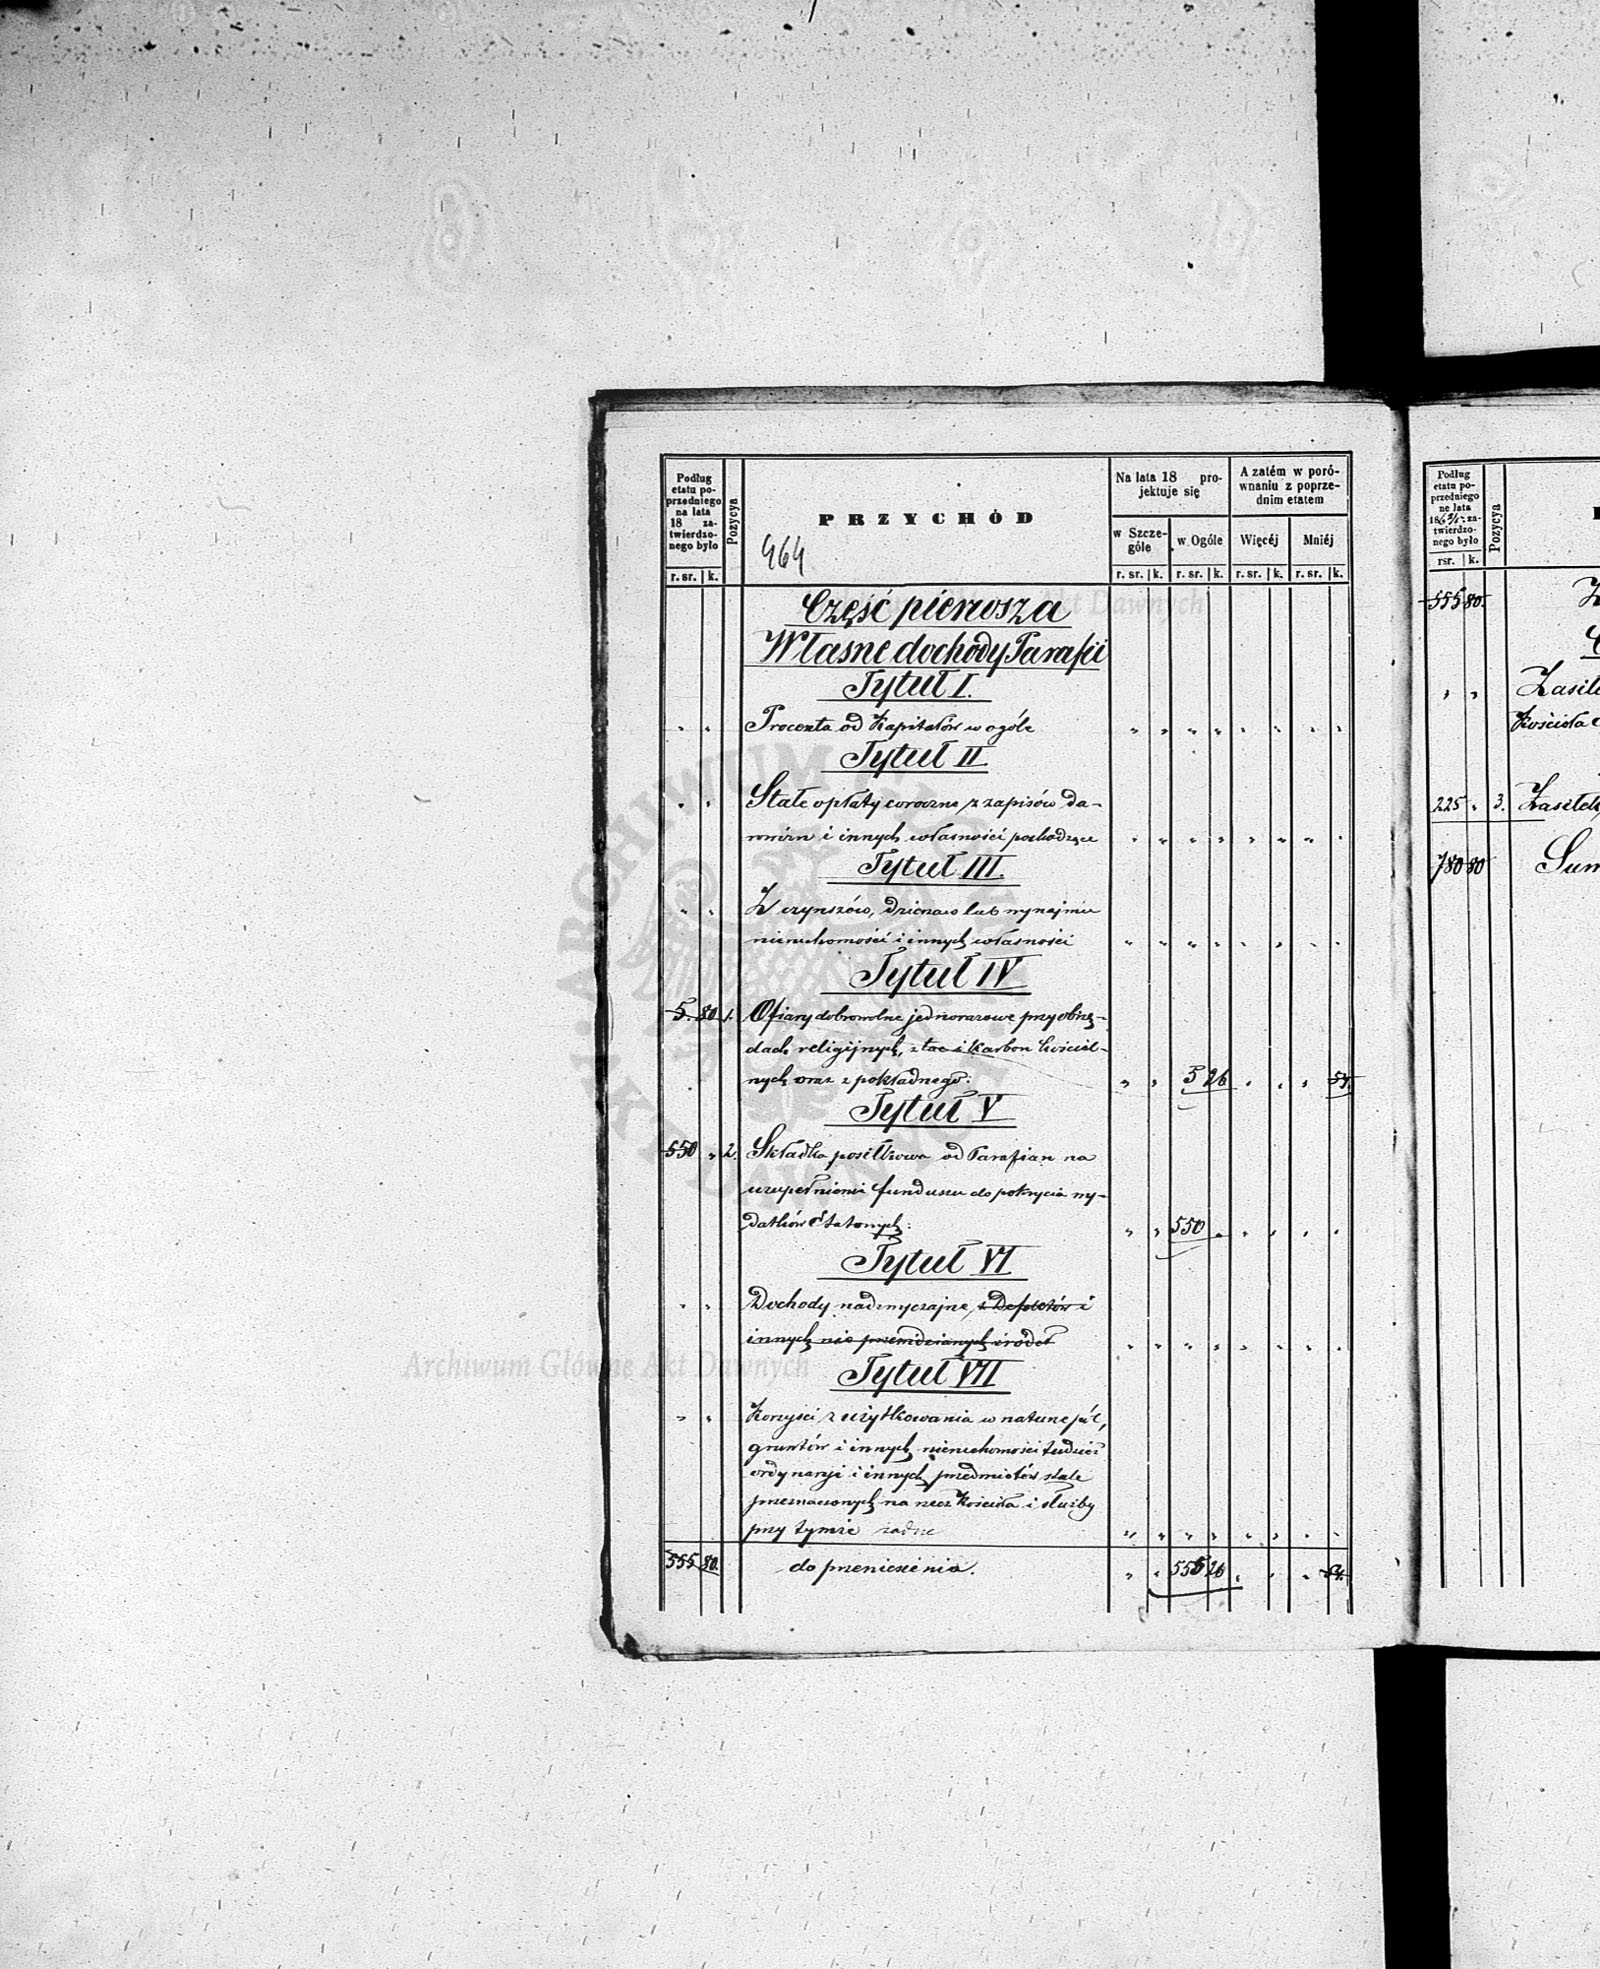 Podług
etatu po-
przedniego
na lata
18 za-
twierdzo-
nego było
r. sr. k.
Pozycya
PRZYCHÓD
464
Na lata 18 pro-
jektuje się
w Szcze-
góle
w Ogóle
A zatém w poró-
wnaniu z poprze-
dnim etatem
Więcéj
Mniéj
r. sr. k. r. sr. k. r. sr. k. r. sr. k.
Część pierwsza
Własne dochody Parafii
Tytuł I.
" " Procenta od Kapitałów w ogóle " " " " " " " "
Tytuł II
" " Stałe opłaty coroczne z zapisów da-
rowizn i innych własności pochodzące " " " " " " " "
Tytuł III.
" " Z czynszów, dzierzaw lub wynajmu
nieruchomości i innych własności " " " " " " " "
Tytuł IV
5. 80 1. Ofiary dobrowolne jednorazowe przy obrzę-
dach religijnych, z tac i Karbon kościel-
nych oraz z pokładnego: " " 5 26 " " " 54.
Tytuł V
550 " 2. Składka posiłkowa od Parafian na
uzupełnienie funduszu do pokrycia wy-
datków Etatowych: " " 550 " " " " "
Tytuł VI
" " Dochody nadzwyczajne, z Defektów i
innych nie przewidzianych źródeł " " " " " " " "
Tytuł VII
" " Korzyści z użytkowania w naturze pól,
gruntów i innych nieruchomości tudzież
ordynaryi i innych przedmiotów stale
przeznaczonych na rzecz Kościoła i służby
przy tymże żadne " " " " " " " "
555 80. do przeniesienia. " " 555 26 " " " 54.
Podług
etatu po-
przedniego
ne lata
za-
twierdzo-
nego było
rsr. k.
Pozycya
555 80.
" " Zasiłe
Kościoła
225 " 3. Zasiłek
780 80 Sum
Archiwum Główne Akt Dawnych